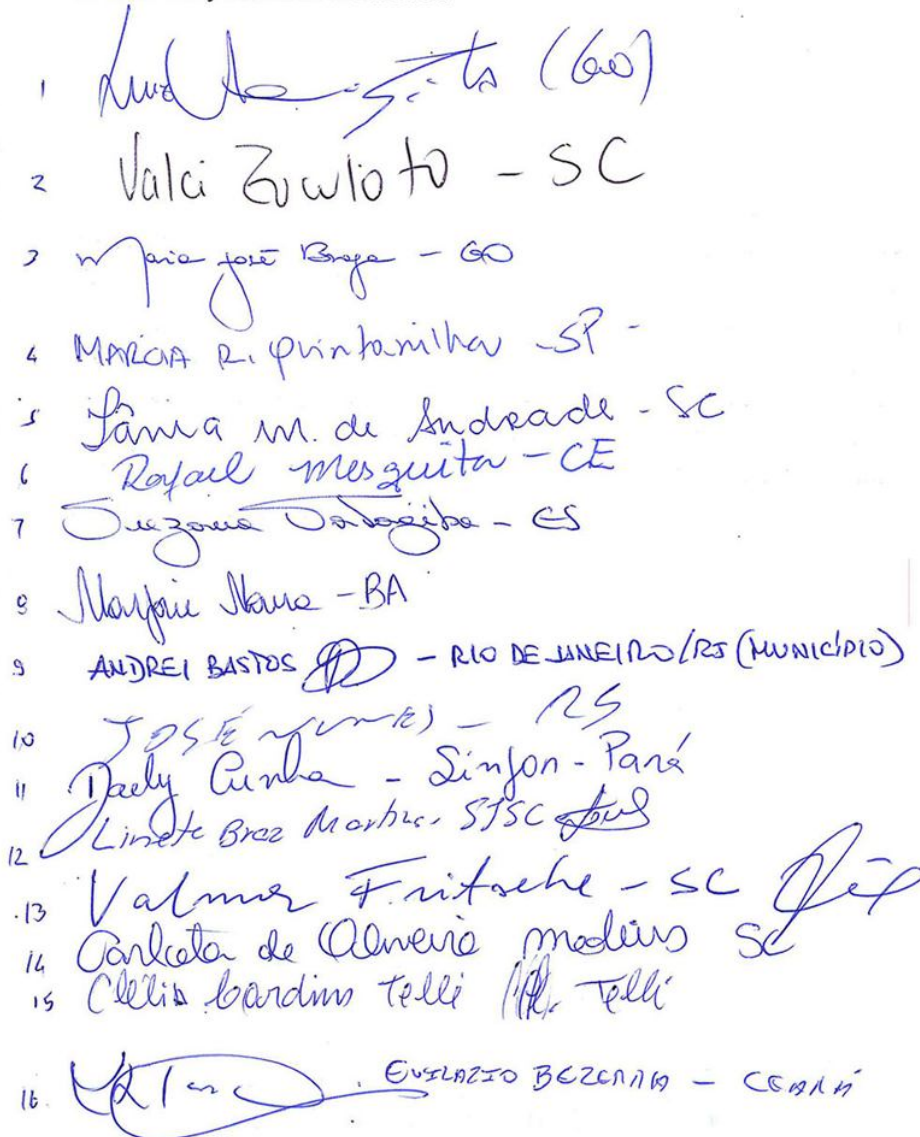 1 Luiz (GO)
2 Valci Zuculoto - SC
3 Maria José Braga - GO
4 MARCIA R. Quintanilha - SP -
5 Tânia M. de Andrade - SC
6 Rafael Mesquita - CE
7 Suzana Tatagiba - ES
8 Marjorie Moura - BA
9 ANDREI BASTOS - RIO DE JANEIRO/RJ (MUNICÍPIO)
10 JOSÉ NUNES - RS
11 Daely Cunha - Sinjor - Pará
12 Linete Braz Martins - SJSC
13 Valmor Fritsche - SC
14 de Oliveira SC
15 Clélia Cardim Telli Telli
16. EVILAZIO BEZERRA - CEARÁ